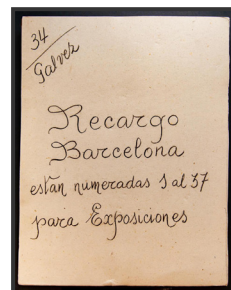 34
Galvez
Recargo
Barcelona
están numeradas 1 al 37
para Exposiciones